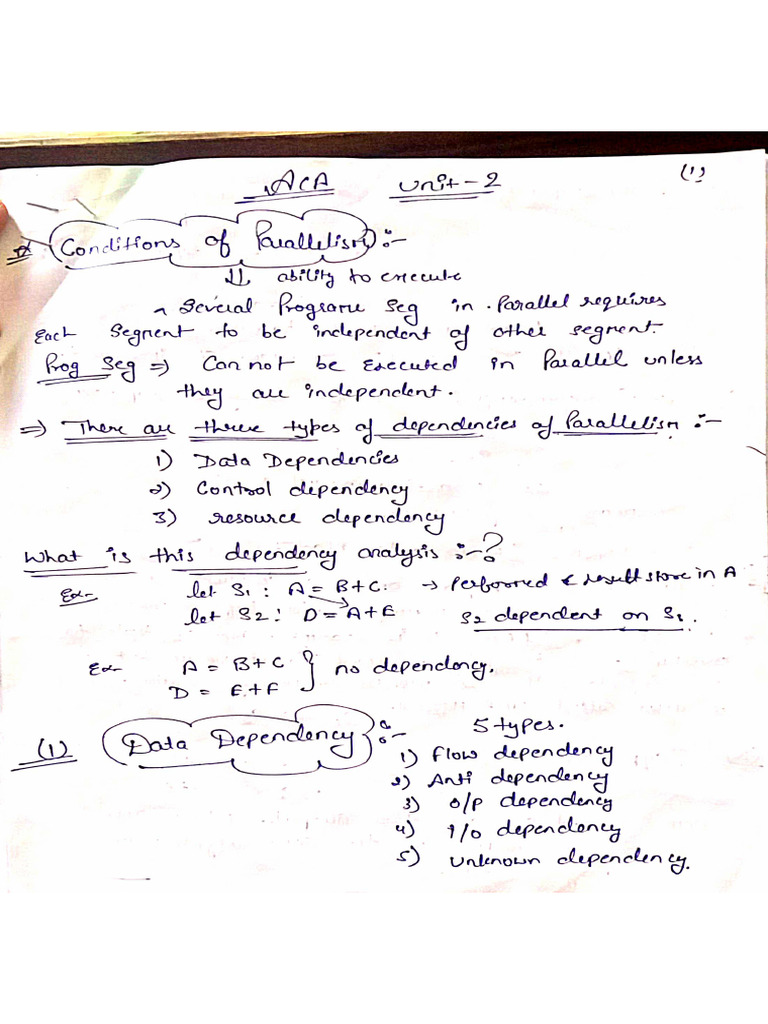 ACA Unit-2 (1)
Conditions of Parallelism :-
ability to execute
Several Programe Seg in Parallel requires
Each Segment to be independent of other segment.
Prog Seg ⇒ Can not be Executed in Parallel unless
they are independent.
⇒ There are three types of dependencies of Parallelism :-
1) Data Dependencies
2) Control dependency
3) resource dependency
What is this dependency analysis :- ?
Ex- let S1 : A = B+C. → Performed & result store in A
let S2 : D = A+E S2 dependent on S1.
Ex- A = B+C } no dependency.
D = E+F
(1) Data Dependency :- 5 types.
1) Flow dependency
2) Anti dependency
3) o/p dependency
4) I/o dependency
5) Unknown dependency.